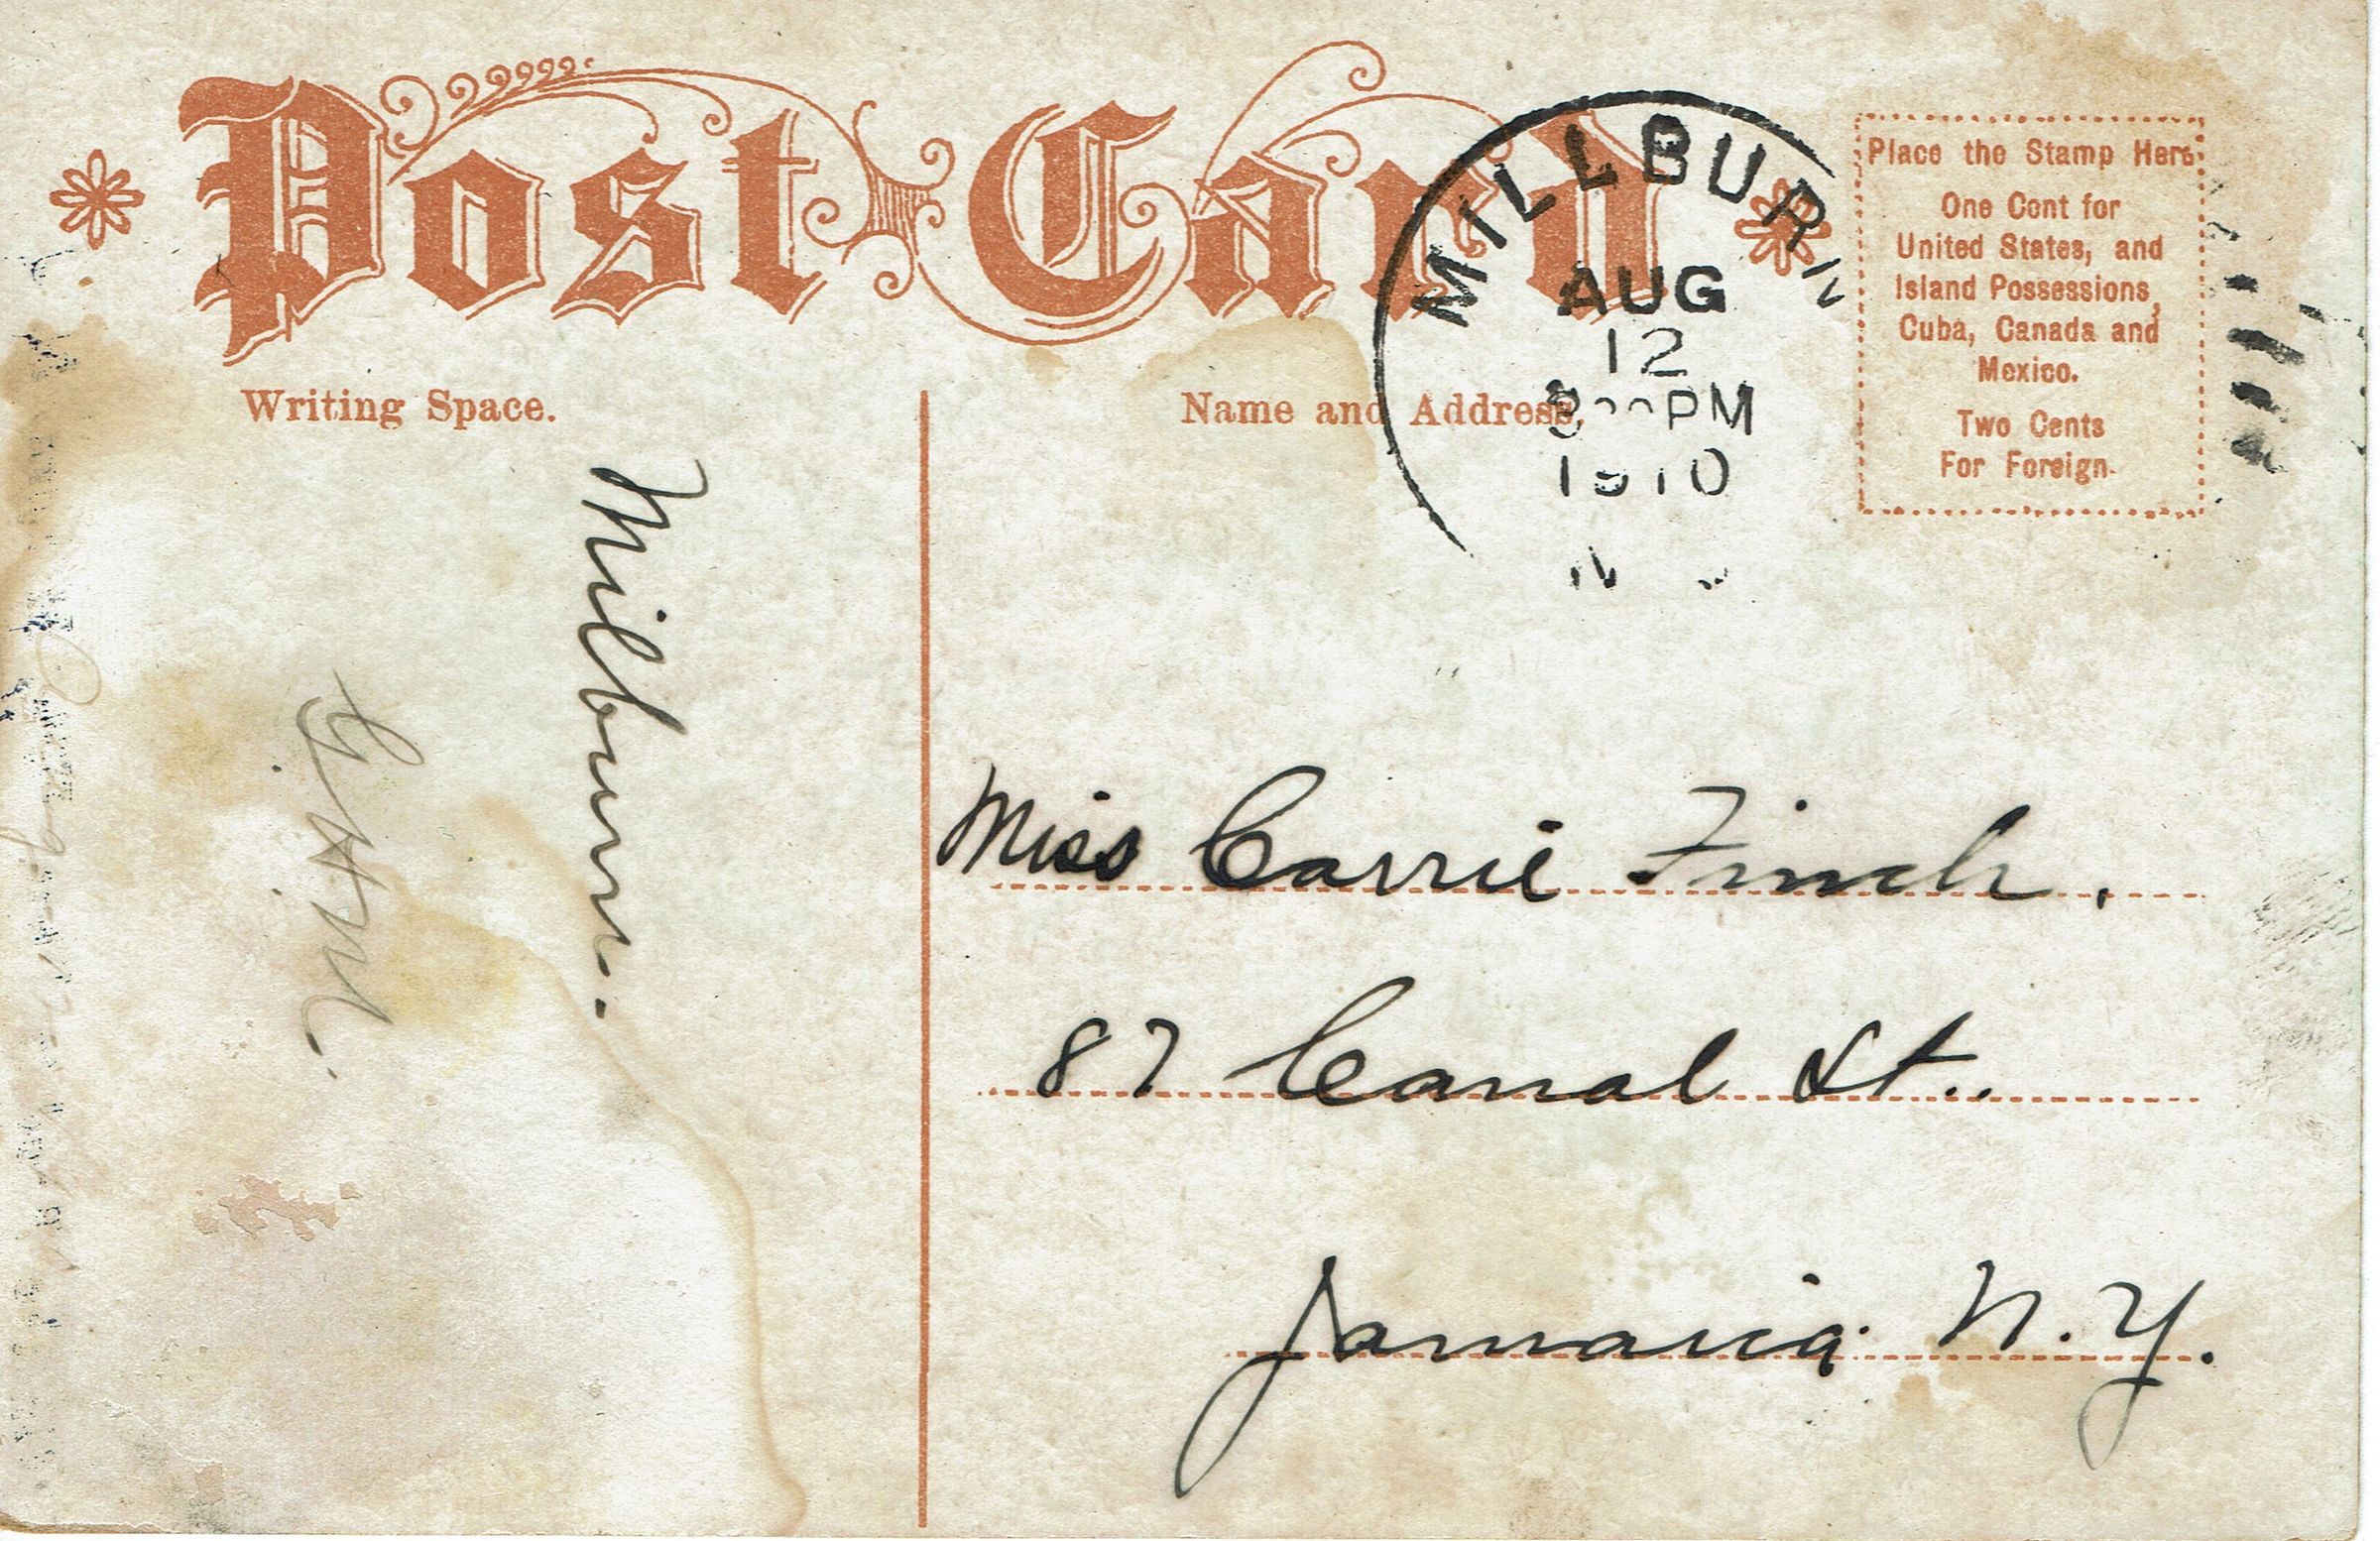 Post Card
MILLBURN
AUG
12
PM
1910
Place the Stamp Here
One Cent for
United States, and
Island Possessions,
Cuba, Canada and
Mexico.
Two Cents
For Foreign.
Writing Space.
Name and Address.
Milburn.
G.H.M.
Miss Carrie Finch.
87 Canal St..
Jamaica N.Y.